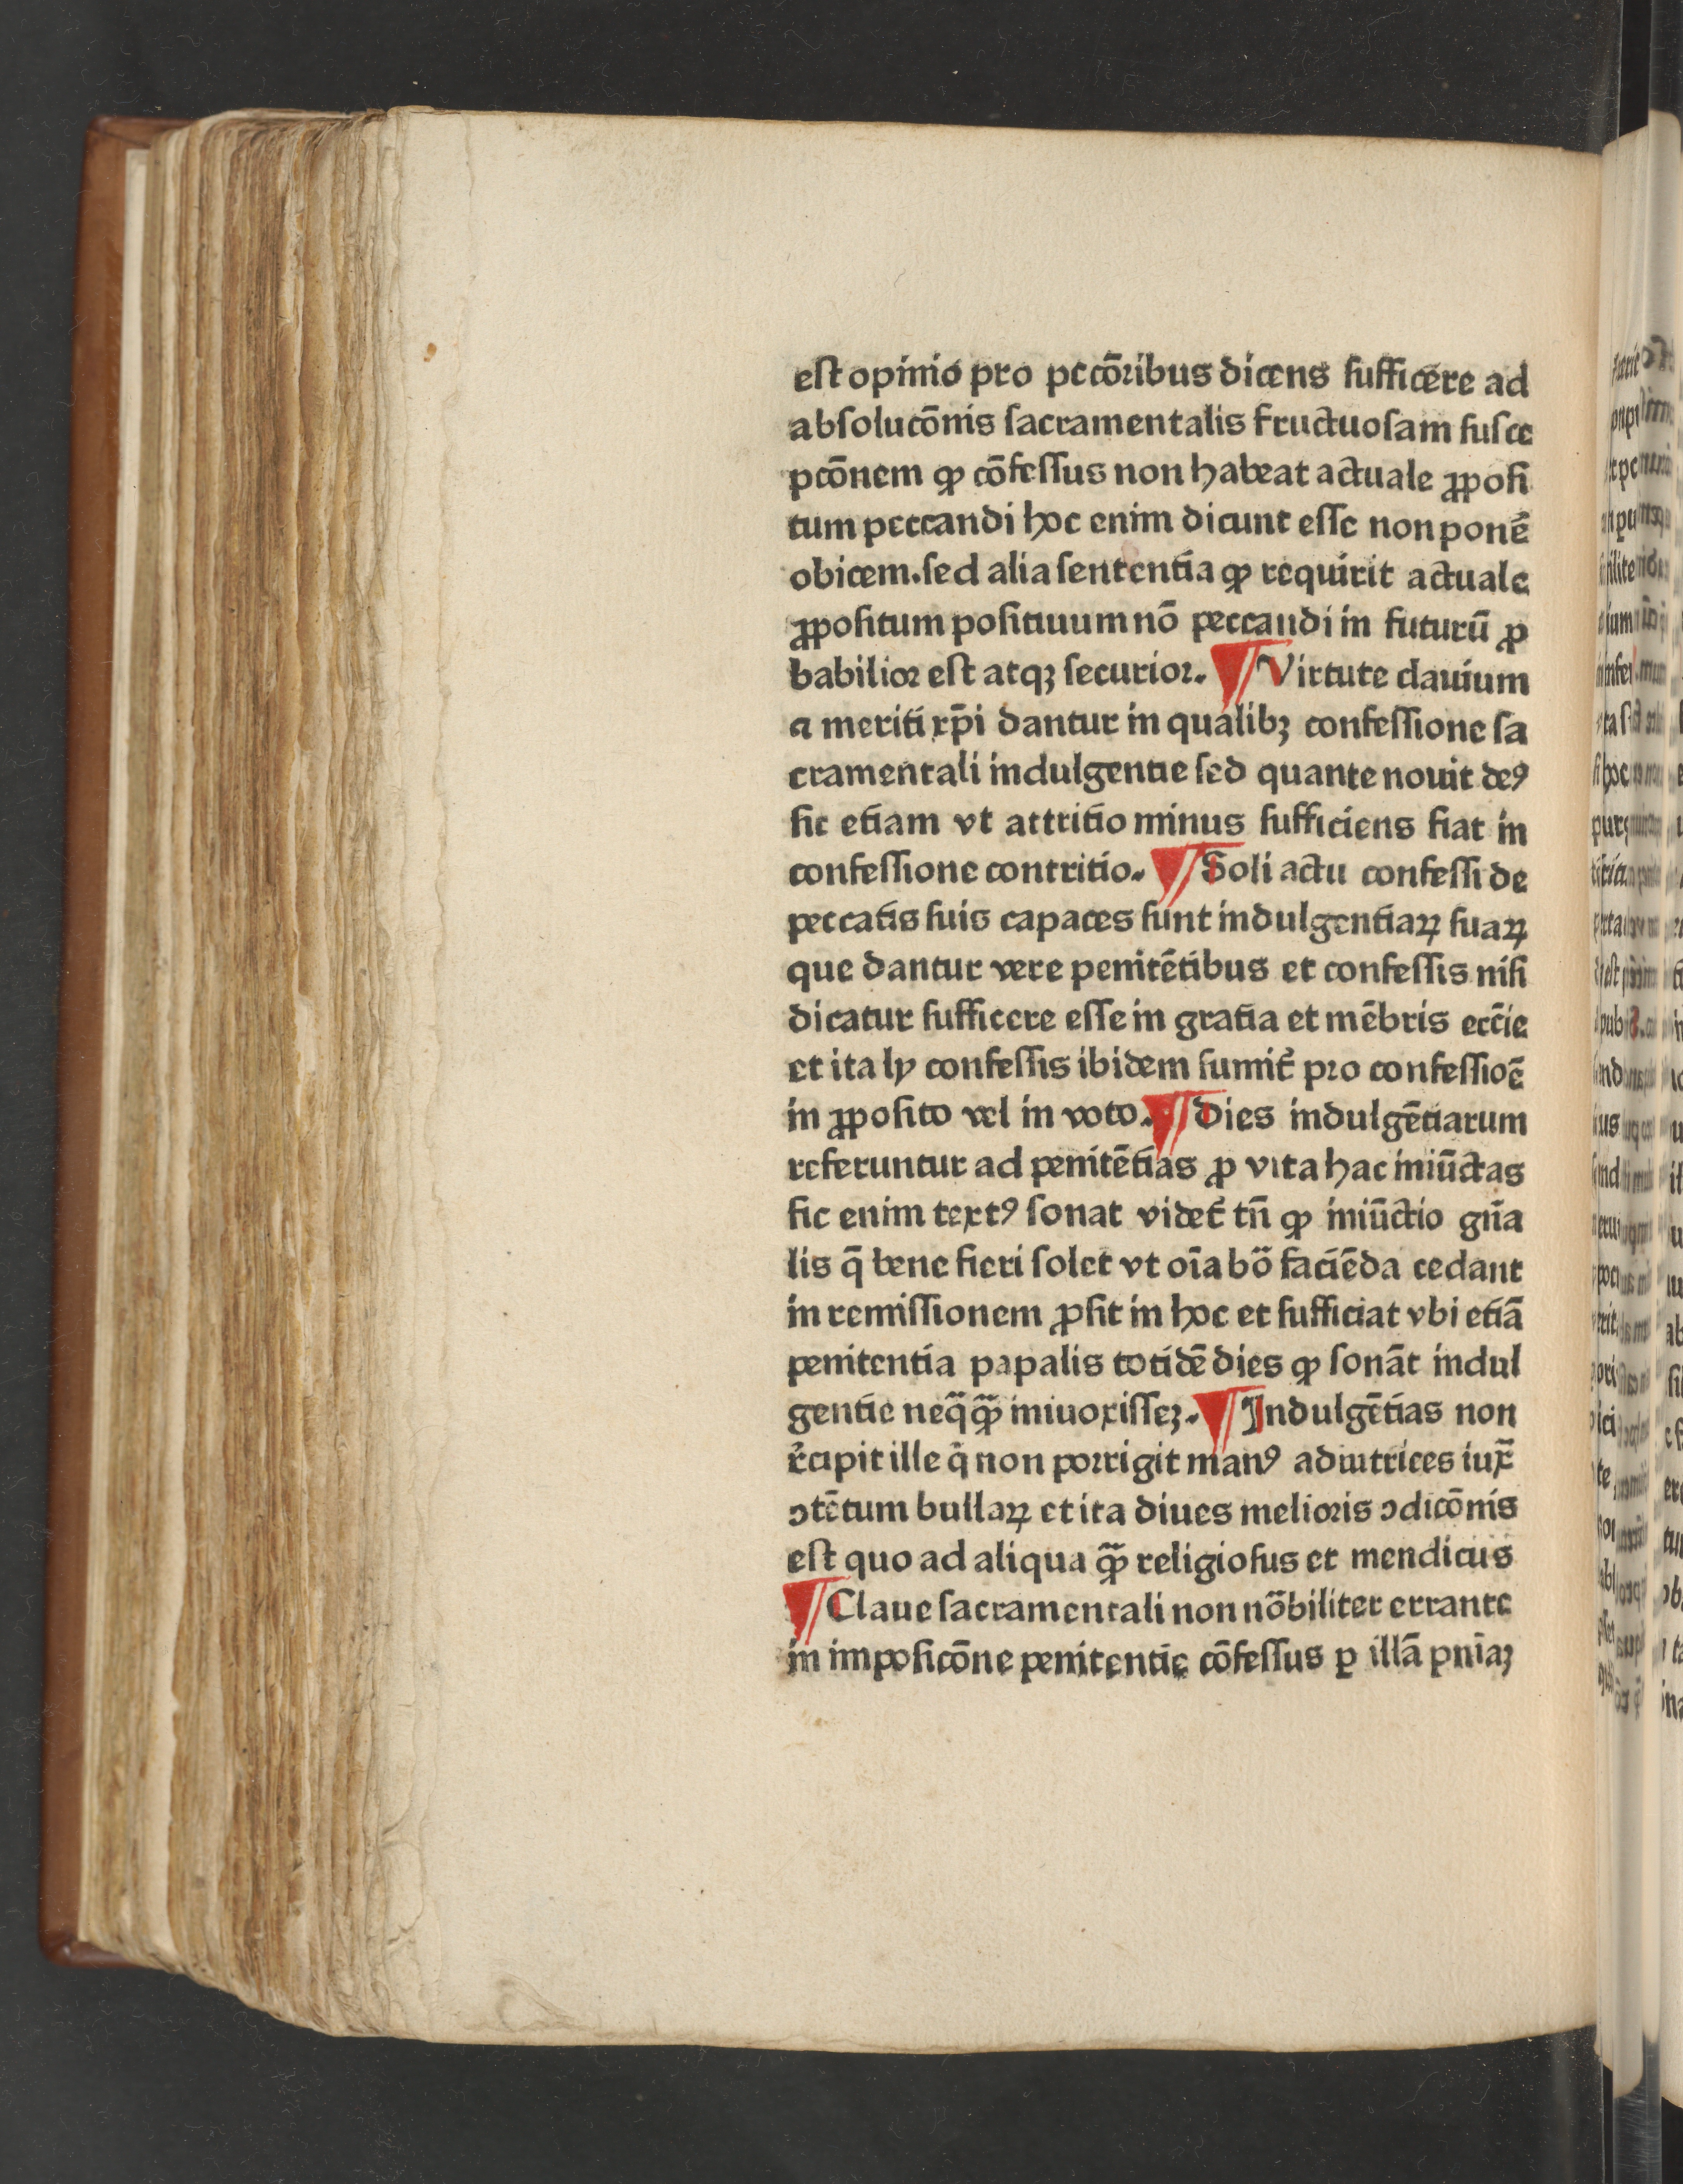 est opinio pro pccōribus dicens sufficere ad
absolucōnis sacramentalis fructuosam susce
pcōnem ꝙ cōfessus non habeat actuale ꝓposi
tum peccandi hoc enim dicunt esse non ponē
obicem. sed alia sententia ꝙ requirit actuale
ꝓpositum positiuum nō peccandi in futurū ꝓ
babilior est atqꝫ securior. ¶ Virtute clauium
a meriti xp̄i dantur in qualibꝫ confessione sa
cramentali indulgentie sed quante nouit deꝰ
sic etiam vt attritio minus sufficiens fiat in
confessione contritio. ¶ Soli actu confessi de
peccatis suis capaces sunt indulgentiaꝝ suaꝝ
que dantur vere penitētibus et confessis nisi
dicatur sufficere esse in gratia et mēbris ecc̄ie
et ita ly confessis ibidem sumit᷑ pro confessiōe
in ꝓposito vel in voto. ¶ Dies indulgētiarum
referuntur ad penitētias ꝓ vita hac iniūctas
sic enim textꝰ sonat videt᷑ tn̄ ꝙ iniūctio gn̄a
lis q̄ bene fieri solet vt oīa bō faciēda cedant
in remissionem ꝓsit in hoc et sufficiat vbi etiā
penitentia papalis totidē dies ꝙ sonāt indul
gentie neq̄ꝙ̄ iniuoxisseꝫ. ¶ Indulgētias non
r̄cipit ille q̄ non porrigit manꝰ adiutrices iux̄
ↄtētum bullaꝝ et ita diues melioris ↄdicōnis
est quo ad aliqua ꝙ̄ religiosus et mendicus
¶ Claue sacramentali non nōbiliter errante
in imposicōne penitentie cōfessus ꝑ illā pn̄iaꝫ